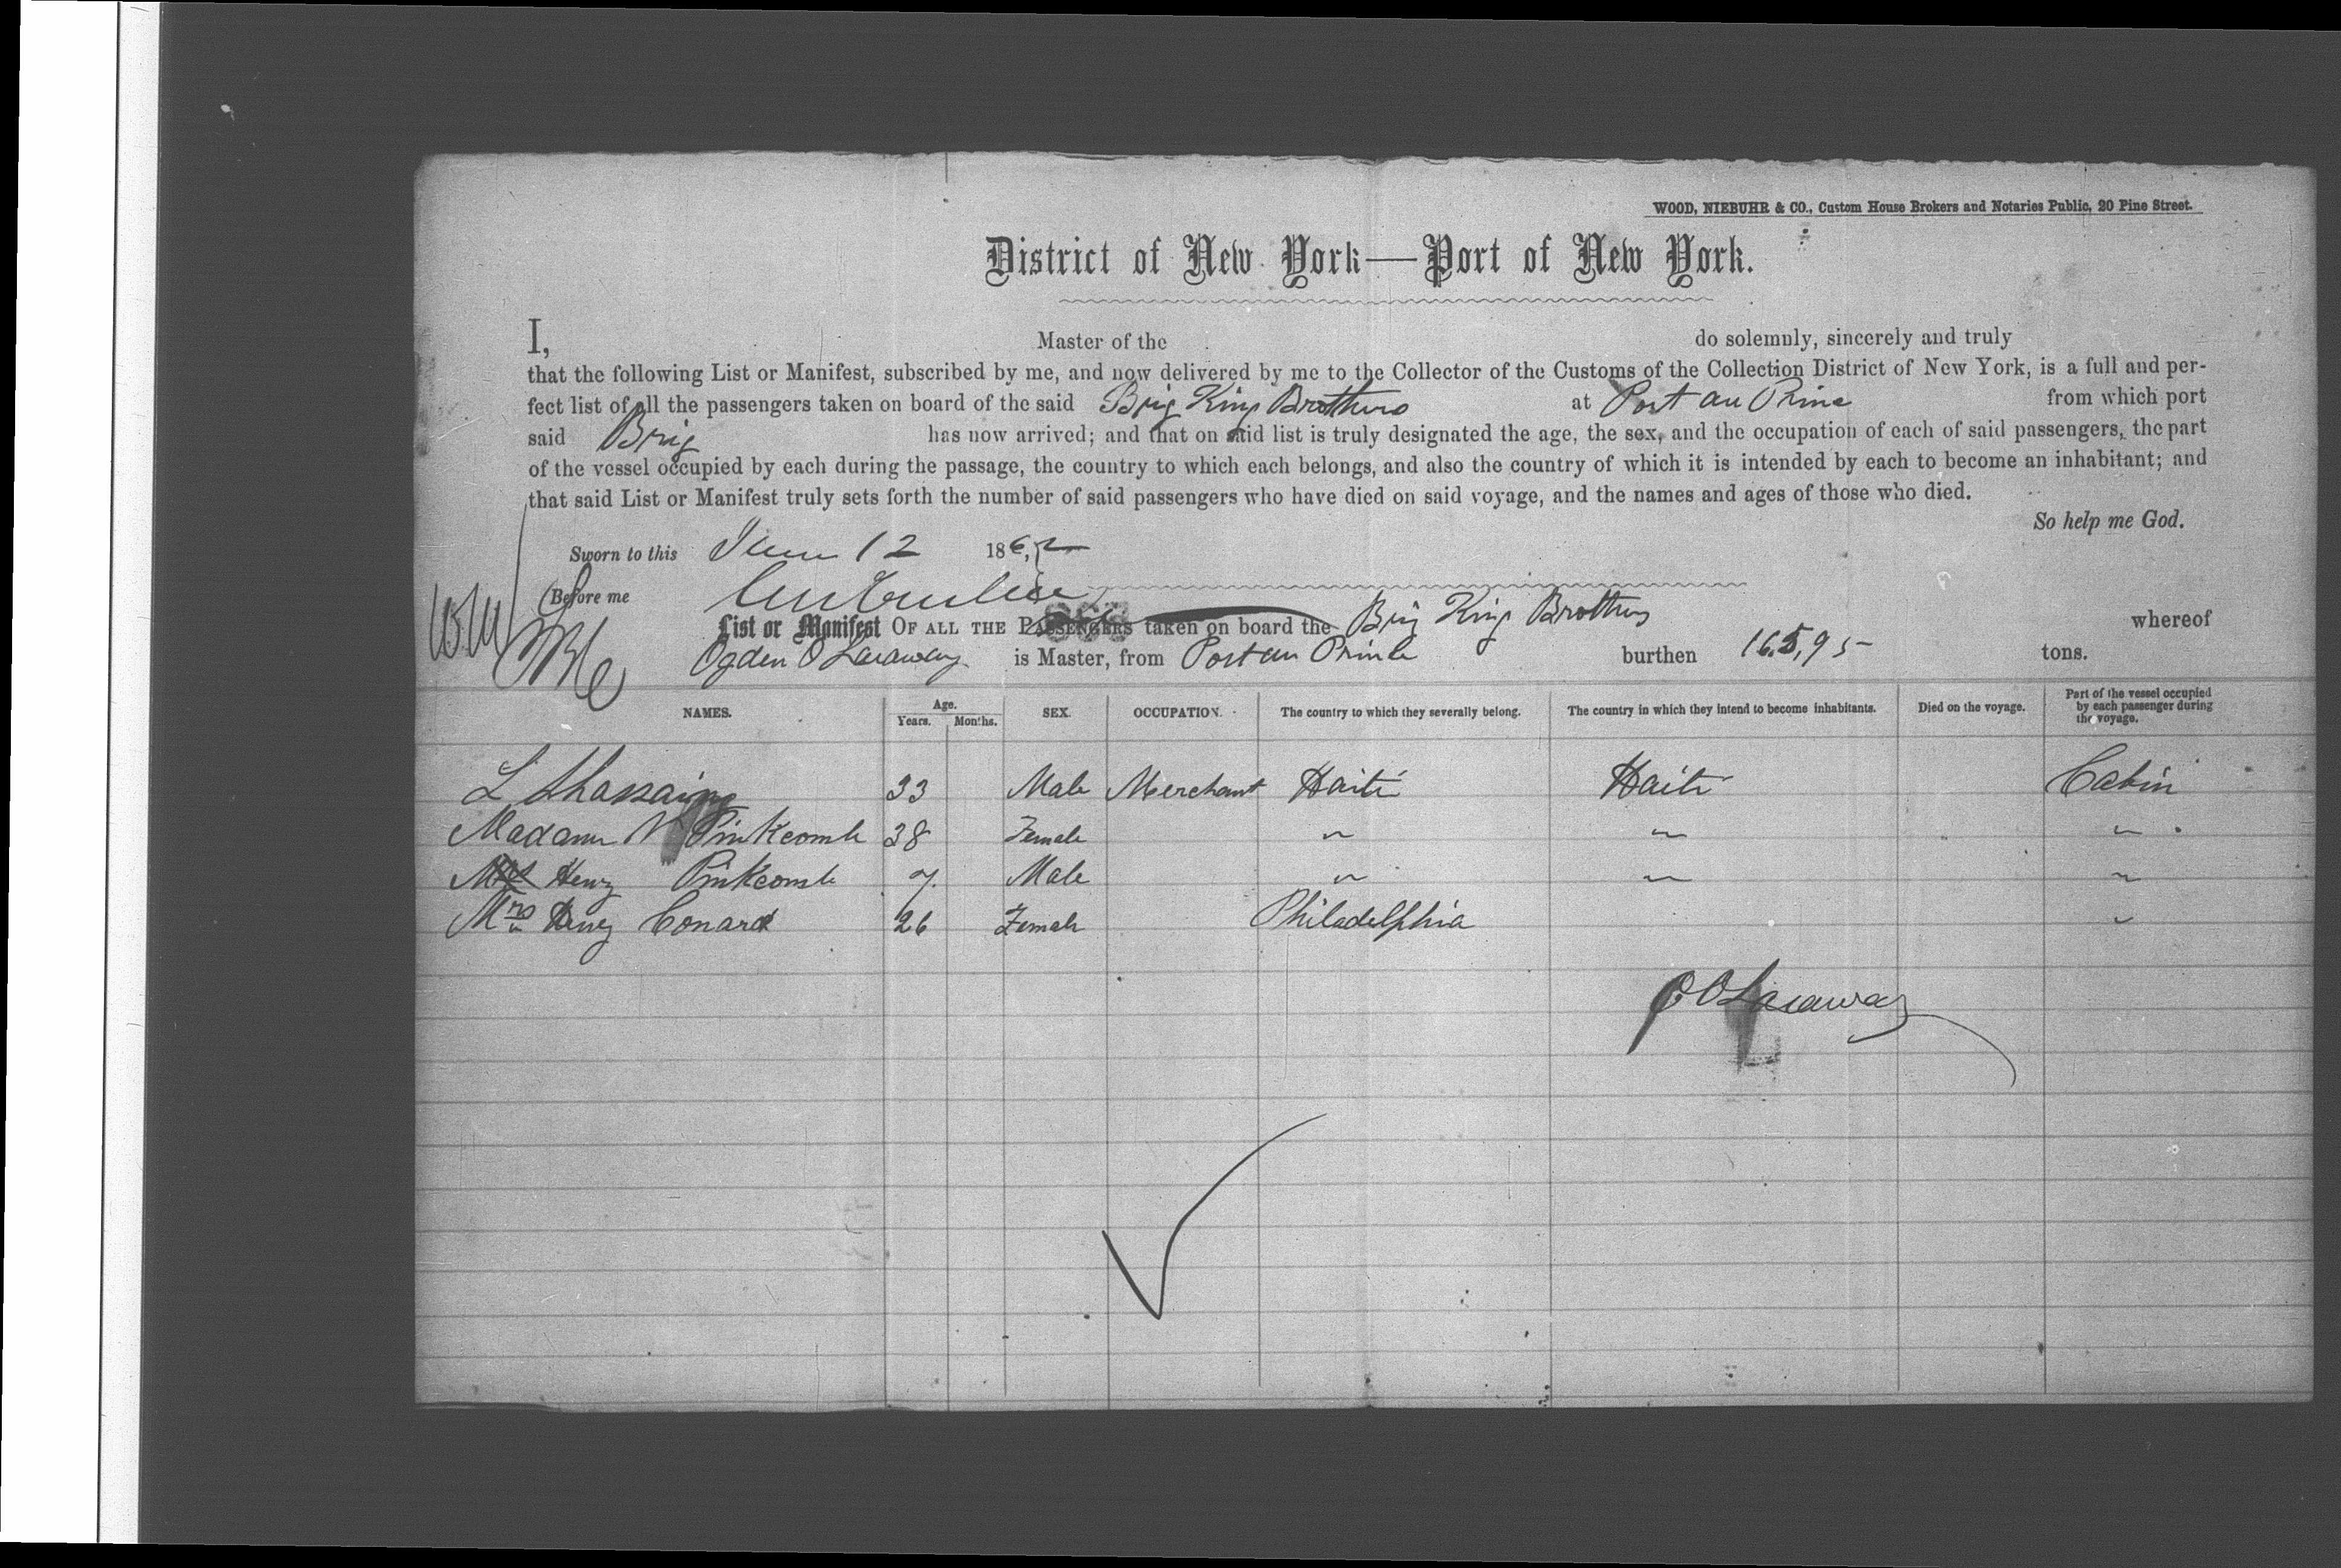 WOOD, NIEBUHR & CO., Custom House Brokers and Notaries Public, 20 Pine Street.
District of New York—Port of New York.
I, Master of the do solemnly, sincerely and truly
that the following List or Manifest, subscribed by me, and now delivered by me to the Collector of the Customs of the Collection District of New York, is a full and per-
fect list of all the passengers taken on board of the said Brig King Brothers at Port au Prince from which port
said Brig has now arrived; and that on said list is truly designated the age, the sex, and the occupation of each of said passengers, the part
of the vessel occupied by each during the passage, the country to which each belongs, and also the country of which it is intended by each to become an inhabitant; and
that said List or Manifest truly sets forth the number of said passengers who have died on said voyage, and the names and ages of those who died.
So help me God.
Sworn to this June 12 1862
Before me
List or Manifest OF ALL THE PASSENGERS taken on board the Brig King Brothers whereof
Ogden O Laraway is Master, from Port au Prince burthen 165,95 tons.
NAMES. Age. Years. Months. SEX. OCCUPATION. The country to which they severally belong. The country in which they intend to become inhabitants. Died on the voyage. Part of the vessel occupied by each passenger during the voyage.
L 33 Male Merchant Haiti Haiti Cabin
Madam Pinkcomb 38 Female " " "
Henry Pinkcomb 7 Male " " "
Mrs Henry Conard 26 Female Philadelphia "
O O Laraway